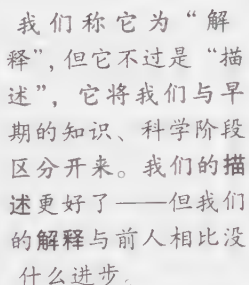 我们称它为“解
释”，但它不过是“描
述”，它将我们与早
期的知识、科学阶段
区分开来。我们的描
述更好了——但我们
的解释与前人相比没
什么进步.